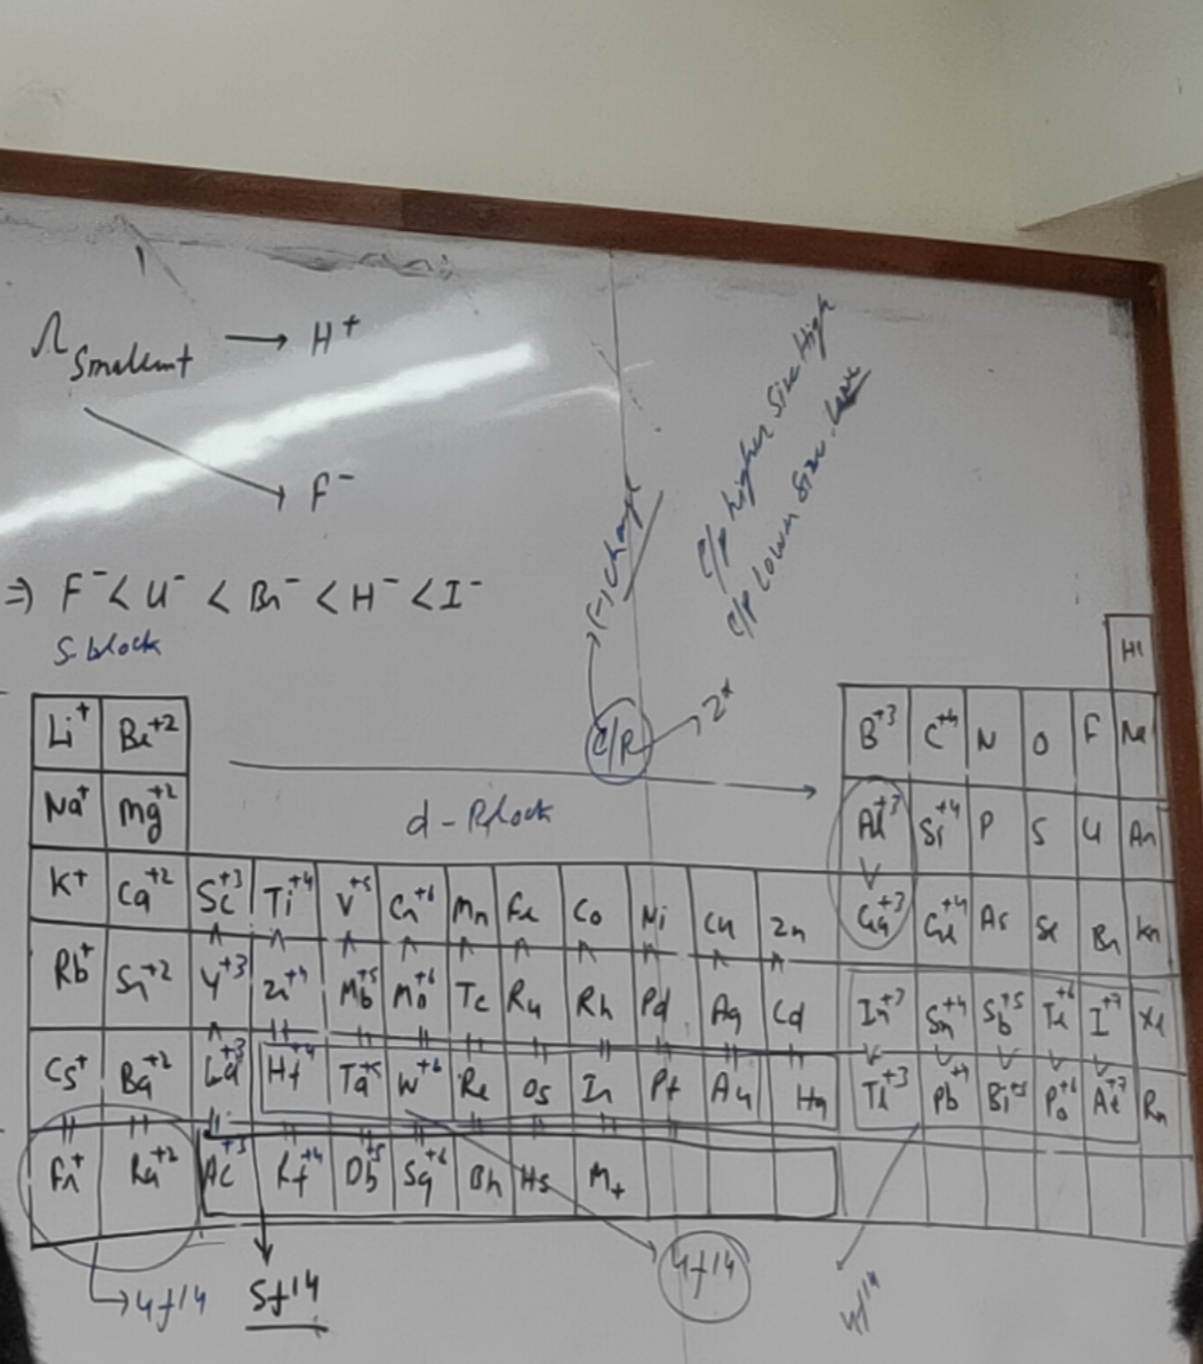 r smallest → H⁺
F⁻
⇒ F⁻ < Cl⁻ < Br⁻ < H⁻ < I⁻
S-block
e/p higher size High
e/p lower size
e/p → Z*
d-Block
He
Li⁺ Be⁺² B⁺³ C⁺⁴ N O F Ne
Na⁺ Mg⁺² Al⁺³ Si⁺⁴ P S Cl Ar
K⁺ Ca⁺² Sc⁺³ Ti⁺⁴ V⁺⁵ Cr⁺⁶ Mn Fe Co Ni Cu Zn Ga⁺³ Ge⁺⁴ As Se Br Kr
Rb⁺ Sr⁺² Y⁺³ Zr⁺⁴ Nb⁺⁵ Mo⁺⁶ Tc Ru Rh Pd Ag Cd In⁺³ Sn⁺⁴ Sb⁺⁵ Te⁺⁶ I⁺⁷ Xe
Cs⁺ Ba⁺² La⁺³ Hf⁺⁴ Ta⁺⁵ W⁺⁶ Re Os Ir Pt Au Hg Tl⁺³ Pb⁺⁴ Bi⁺⁵ Po⁺⁶ At⁺⁷ Rn
Fr⁺ Ra⁺² Ac⁺³ Rf⁺⁴ Db⁺⁵ Sg⁺⁶ Bh Hs Mt
4f14 5f14 4f14 4f14